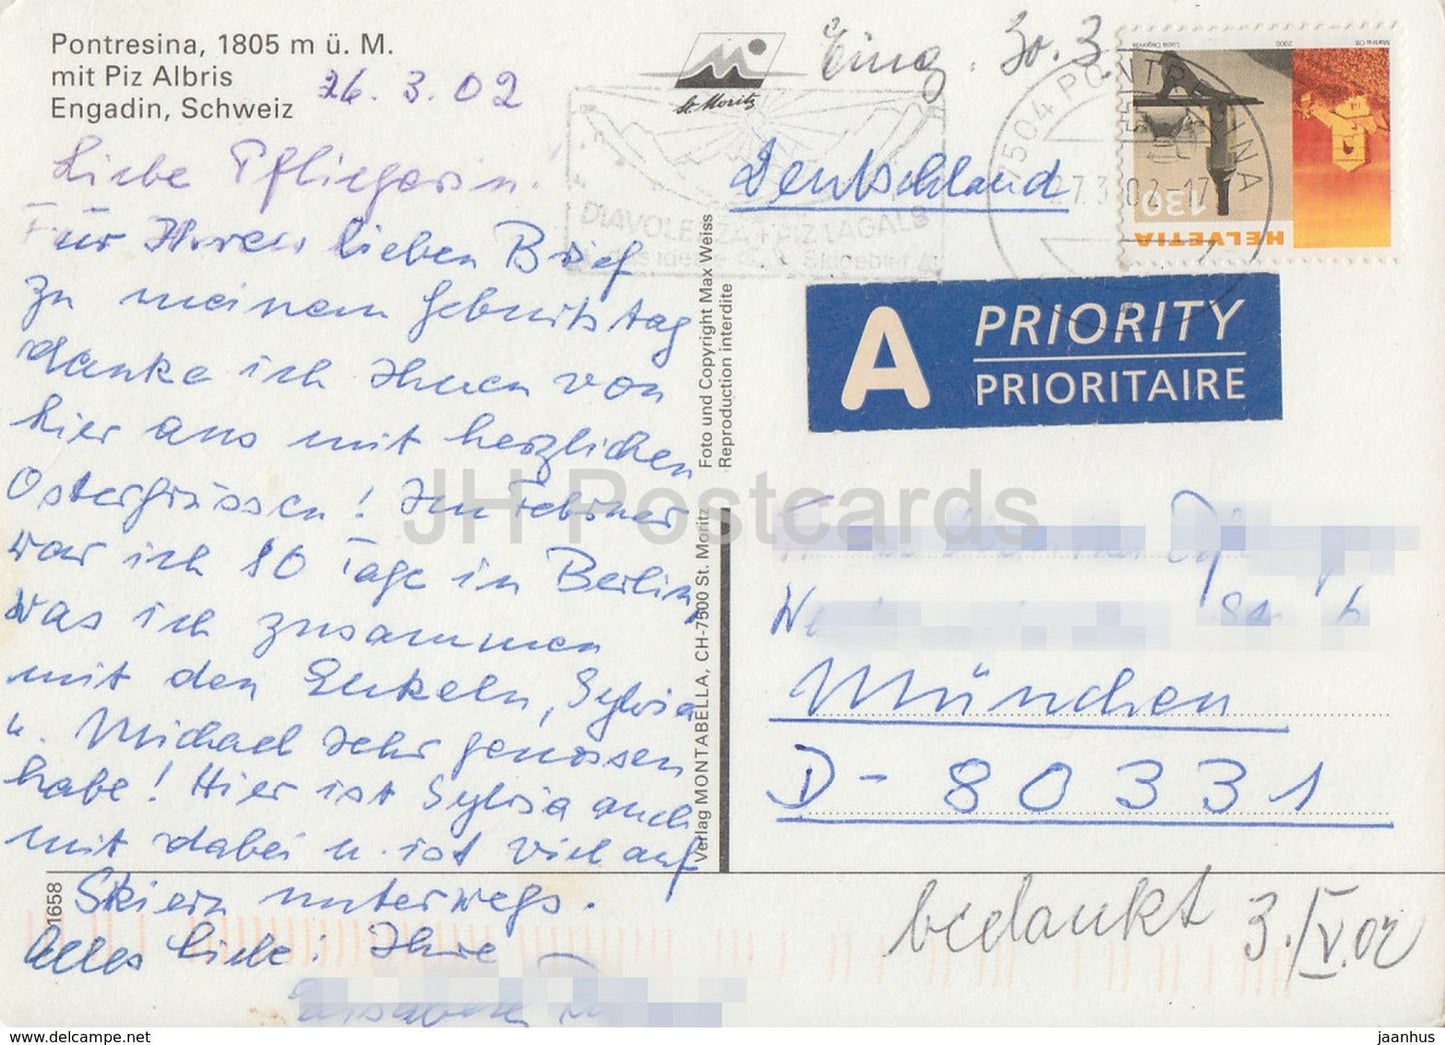 Pontresina, 1805 m ü. M.
mit Piz Albris
Engadin, Schweiz
26. 3. 02
Liebe Pfliegerin!
Für Ihren lieben Brief
zu meinem Geburtstag
danke ich Ihnen von
hier aus mit herzlichen
Ostergrüssen! Im Februar
war ich 10 Tage in Berlin,
was ich zusammen
mit den Enkeln, Sylvia
u. Michael sehr genossen
habe! Hier ist Sylvia auch
mit dabei u. ist viel auf
Skiern unterwegs.
Alles Liebe: Ihre
01658
Foto und Copyright Max Weiss
Reproduction interdite
Verlag MONTABELLA, CH-7500 St. Moritz
St. Moritz
Eing. 30. 3
DIAVOLEZZA + PIZ LAGALB
Skigebiet
7504 PONTRESINA
27.3.02-17
Martina Ott
2000
Lucia Degonda
130
HELVETIA
Deutschland
A PRIORITY
PRIORITAIRE
München
D-80331
bedankt 3./IV.02
JH Postcards
www.delcampe.net
jaanhus